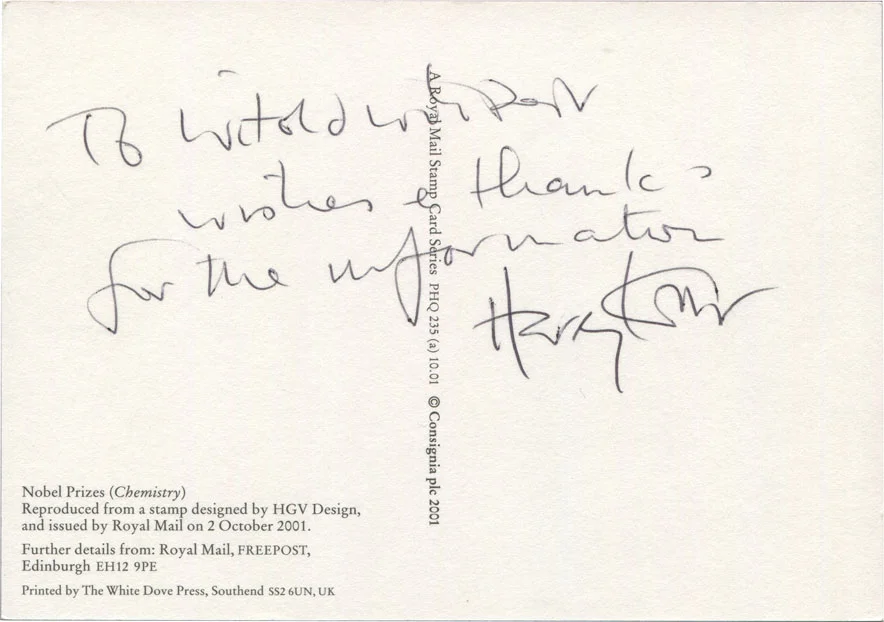 To Witold with Best
wishes & thanks
for the information
Harry Kroto
A Royal Mail Stamp Card Series PHQ 235 (a) 10.01 © Consignia plc 2001
Nobel Prizes (Chemistry)
Reproduced from a stamp designed by HGV Design,
and issued by Royal Mail on 2 October 2001.
Further details from: Royal Mail, FREEPOST,
Edinburgh EH12 9PE
Printed by The White Dove Press, Southend SS2 6UN, UK